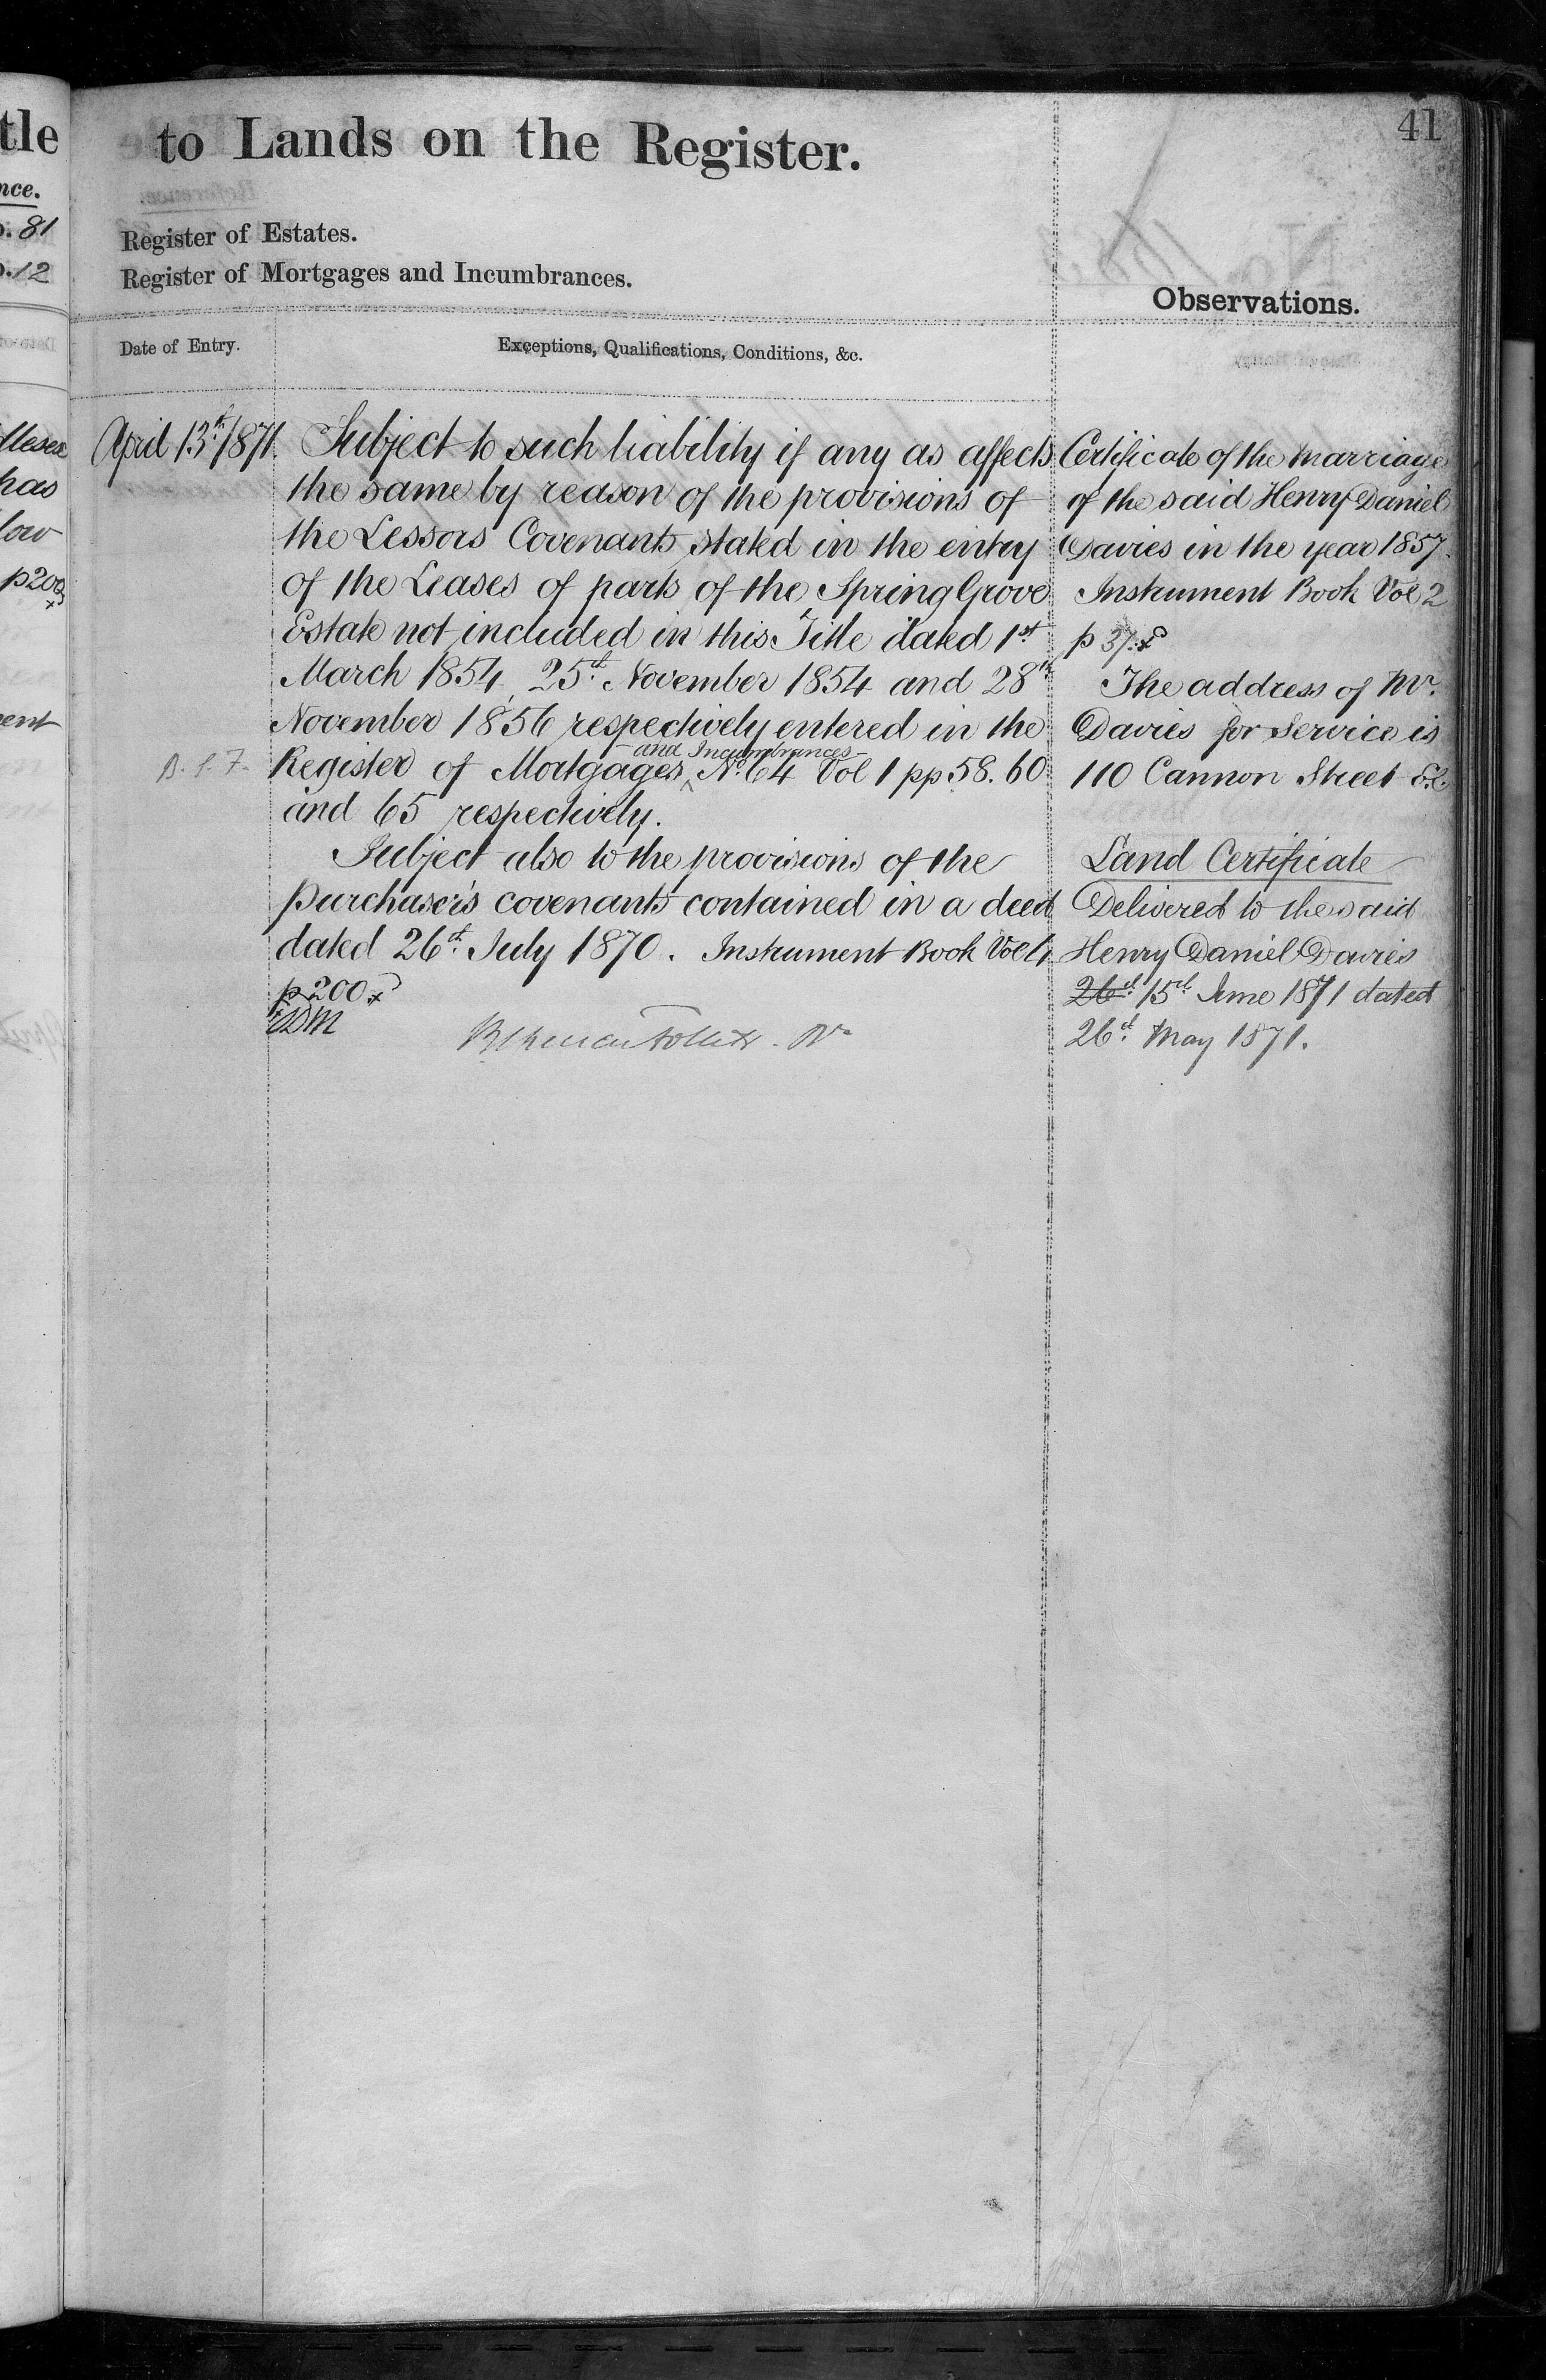 41
to Lands on the Register.
Register of Estates.
Register of Mortgages and Incumbrances.
Observations.
Date of Entry.
Exceptions, Qualifications, Conditions, &c.
April 13th 1871.
Subject to such liability if any as affects
the same by reason of the provisions of
the Lessors Covenants stated in the entry
of the Leases of parts of the Spring Grove
Estate not included in this Title dated 1st
March 1854, 25th November 1854 and 28th
November 1856 respectively entered in the
and Incumbrances
Register of Mortgages ^ No. 64 Vol 1 pp 58. 60
B. S. F.
and 65 respectively.
Subject also to the provisions of the
purchaser's covenants contained in a deed
dated 26th July 1870. Instrument Book Vol 4
p 200
Certificate of the marriage
of the said Henry Daniel
Davies in the year 1857.
Instrument Book Vol 2
p 37
The address of Mr.
Davies for service is
110 Cannon Street E.C.
Land Certificate
Delivered to the said
Henry Daniel Davies
26th 15th June 1871 dated
26th May 1871.
tle
nce.
. 81
.12
has
low
p 200
ent